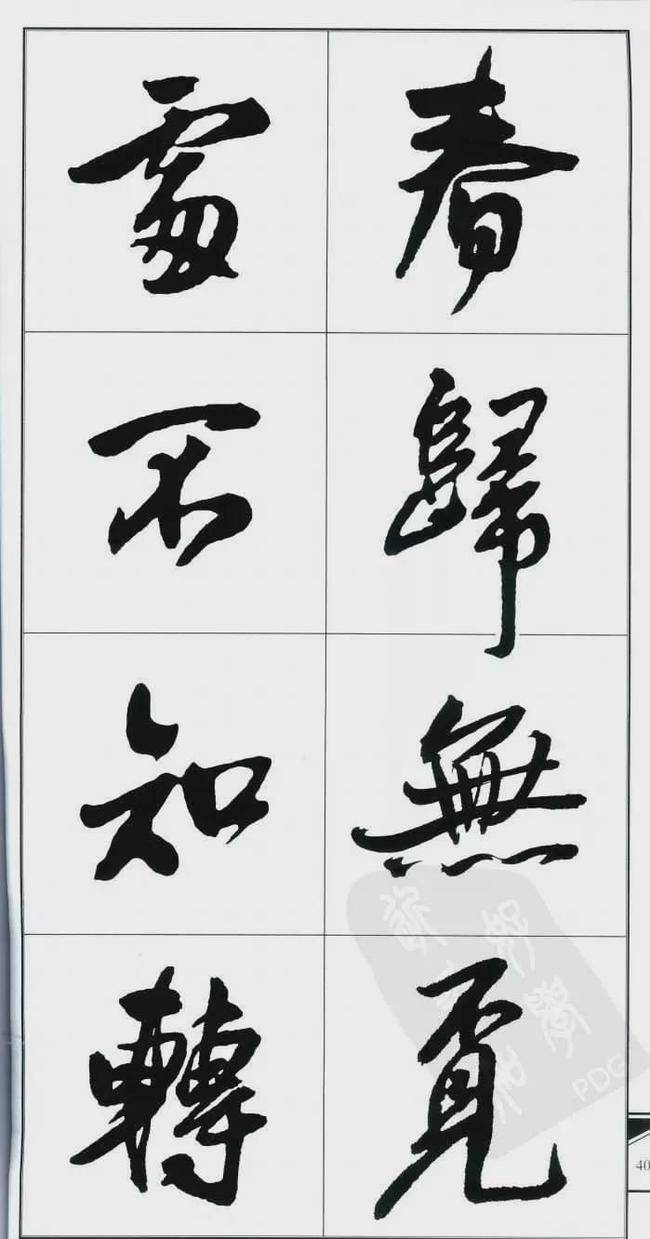 春歸無覔
處不知轉
40
PDG